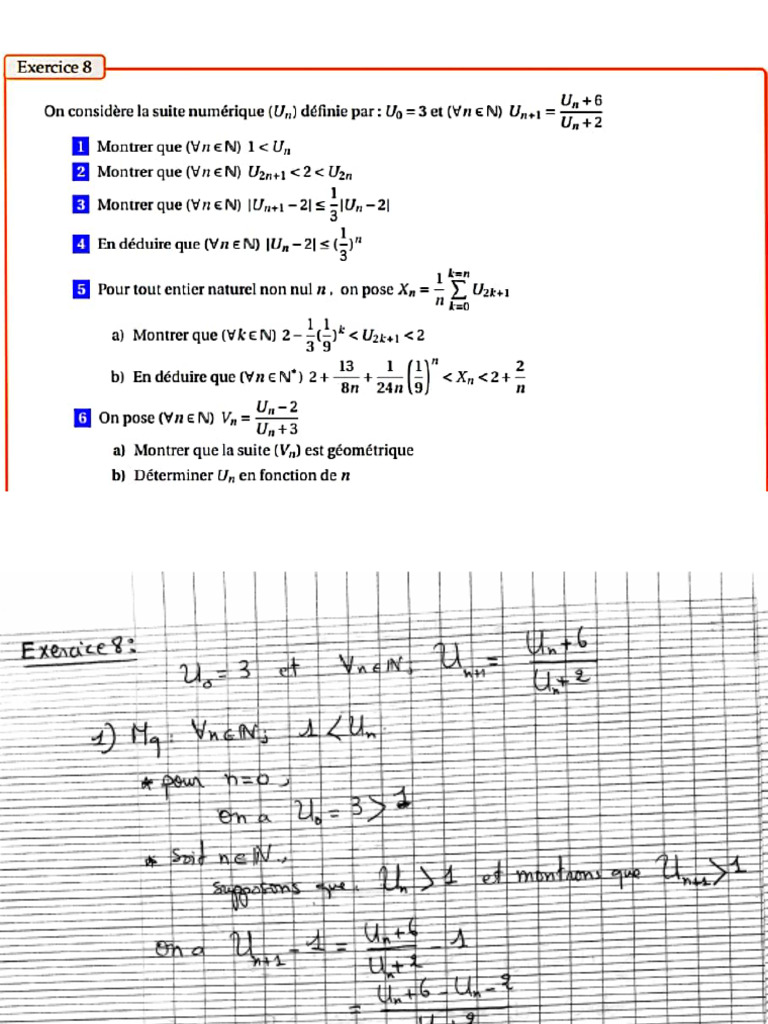 Exercice 8
On considère la suite numérique (Uₙ) définie par : U₀ = 3 et (∀n ∈ ℕ) Uₙ₊₁ = (Uₙ + 6)/(Uₙ + 2)
1 Montrer que (∀n ∈ ℕ) 1 < Uₙ
2 Montrer que (∀n ∈ ℕ) U₂ₙ₊₁ < 2 < U₂ₙ
3 Montrer que (∀n ∈ ℕ) |Uₙ₊₁ − 2| ≤ 1/3 |Uₙ − 2|
4 En déduire que (∀n ∈ ℕ) |Uₙ − 2| ≤ (1/3)ⁿ
5 Pour tout entier naturel non nul n , on pose Xₙ = 1/n ∑_{k=0}^{k=n} U₂ₖ₊₁
a) Montrer que (∀k ∈ ℕ) 2 − 1/3 (1/9)ᵏ < U₂ₖ₊₁ < 2
b) En déduire que (∀n ∈ ℕ*) 2 + 13/8n + 1/24n (1/9)ⁿ < Xₙ < 2 + 2/n
6 On pose (∀n ∈ ℕ) Vₙ = (Uₙ − 2)/(Uₙ + 3)
a) Montrer que la suite (Vₙ) est géométrique
b) Déterminer Uₙ en fonction de n
Exercice 8:
U₀ = 3 et ∀n∈ℕ, Uₙ₊₁ = (Uₙ + 6)/(Uₙ + 2)
1) Mq: ∀n∈ℕ, 1 < Uₙ.
* pour n=0,
on a U₀ = 3 > 1
* Soit n∈ℕ.,
Supposons que. Uₙ > 1 et montrons que Uₙ₊₁ > 1
on a Uₙ₊₁ - 1 = (Uₙ + 6)/(Uₙ + 2) - 1
= (Uₙ + 6 - Uₙ - 2)/